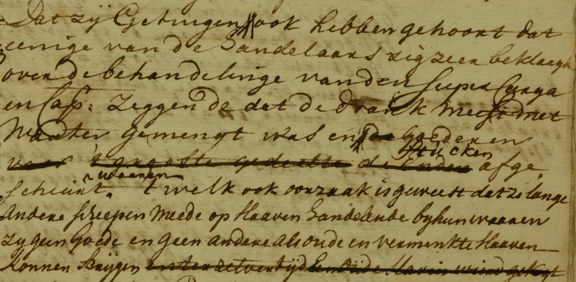 Dat zij Getuigen ook hebben gehoort dat
eenige van de Handelaars zig zeer beklaagt
over de behandelinge van den Super Carga
en Cap: zeggende dat de drank meest met
Waater gemengt was en de goederen
voor 't grootste gedeelte de Enden stucken afge
scheurt waaren. 't welk ook oorzaak is geweest dat zo lange
andere scheepen meede op Slaaven handelende by hun waaren
zy geen goede en geen andere als oude en verminkte Slaaven
konnen krygen